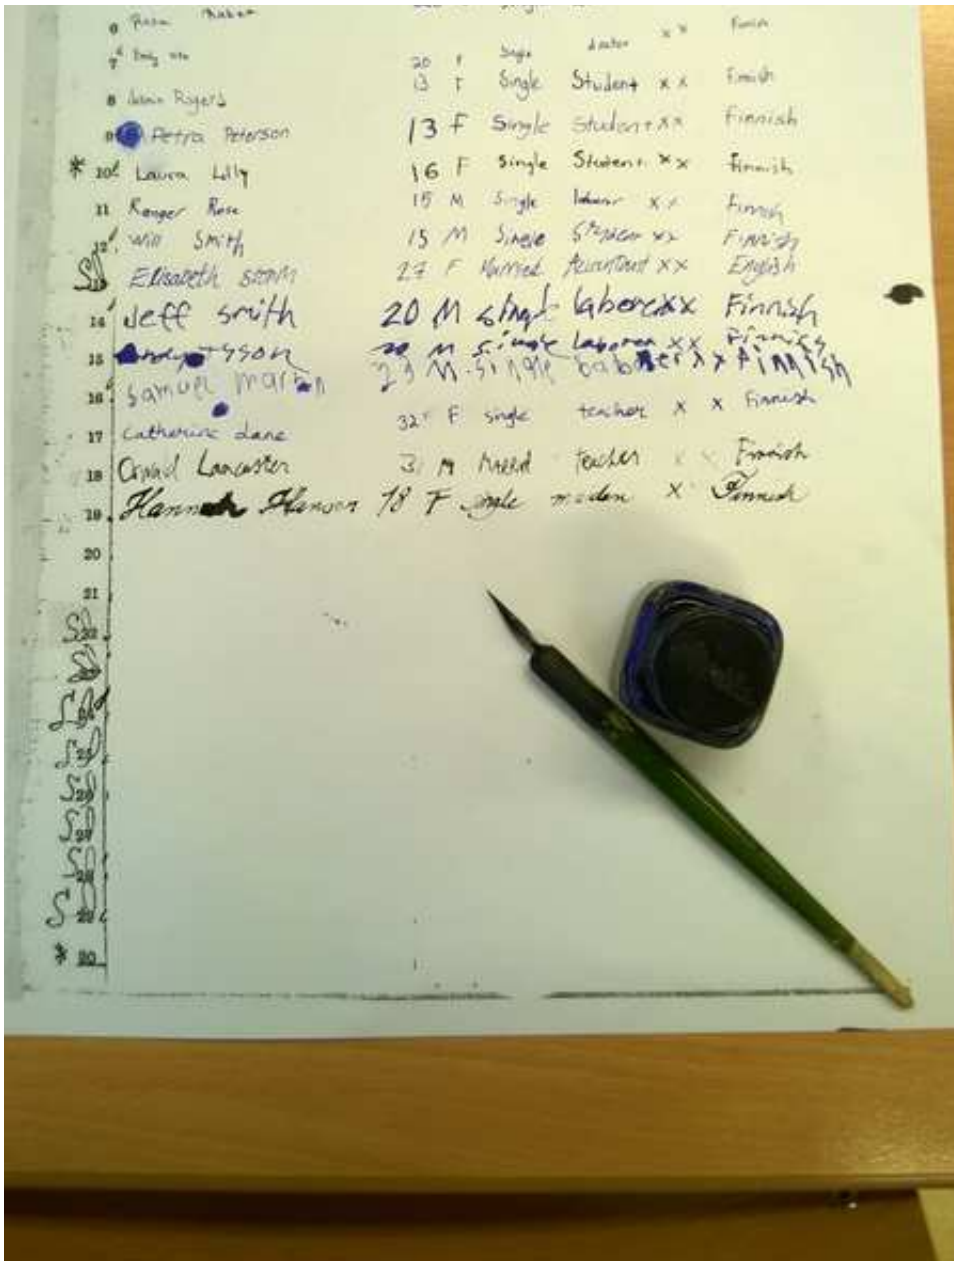 6
7 Emily 20 F Single x x Finnish
8 Rogers 13 F Single Student x x Finnish
9 Petra Peterson 13 F Single Student x x Finnish
* 10 Laura Lilly 16 F Single Student x x Finnish
11 Ranger Rose 15 M Single laborer x x Finnish
12 Will Smith 15 M Single x x Finnish
13 Elisabeth 27 F Married Accountant x x English
14 Jeff Smith 20 M single laborer xx Finnish
15 20 M single laborer xx Finnish
16 Samuel Martin 23 M single xx Finnish
17 Catherine Lane 32 F single teacher x x Finnish
18 Lancaster 31 M teacher x x Finnish
19 Hannah Hanson 18 F single maden x Finnish
20
21
22
23
24
25
26
27
28
29
* 30